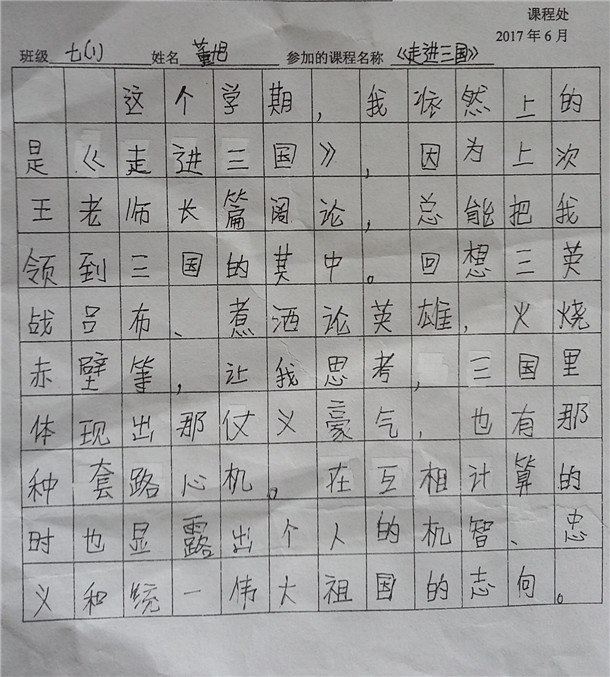 课程处
2017 年 6 月
班级 七(1) 姓名 董旭 参加的课程名称 《走进三国》
这个学期,我依然上的
是《走进三国》,因为上次
王老师长篇阔论,总能把我
领到三国的其中。回想三英
战吕布、煮酒论英雄,火烧
赤壁等,让我思考,三国里
体现出那仗义豪气,也有那
种套路心机。在互相计算的
时也显露出个人的机智、忠
义和统一伟大祖国的志向。